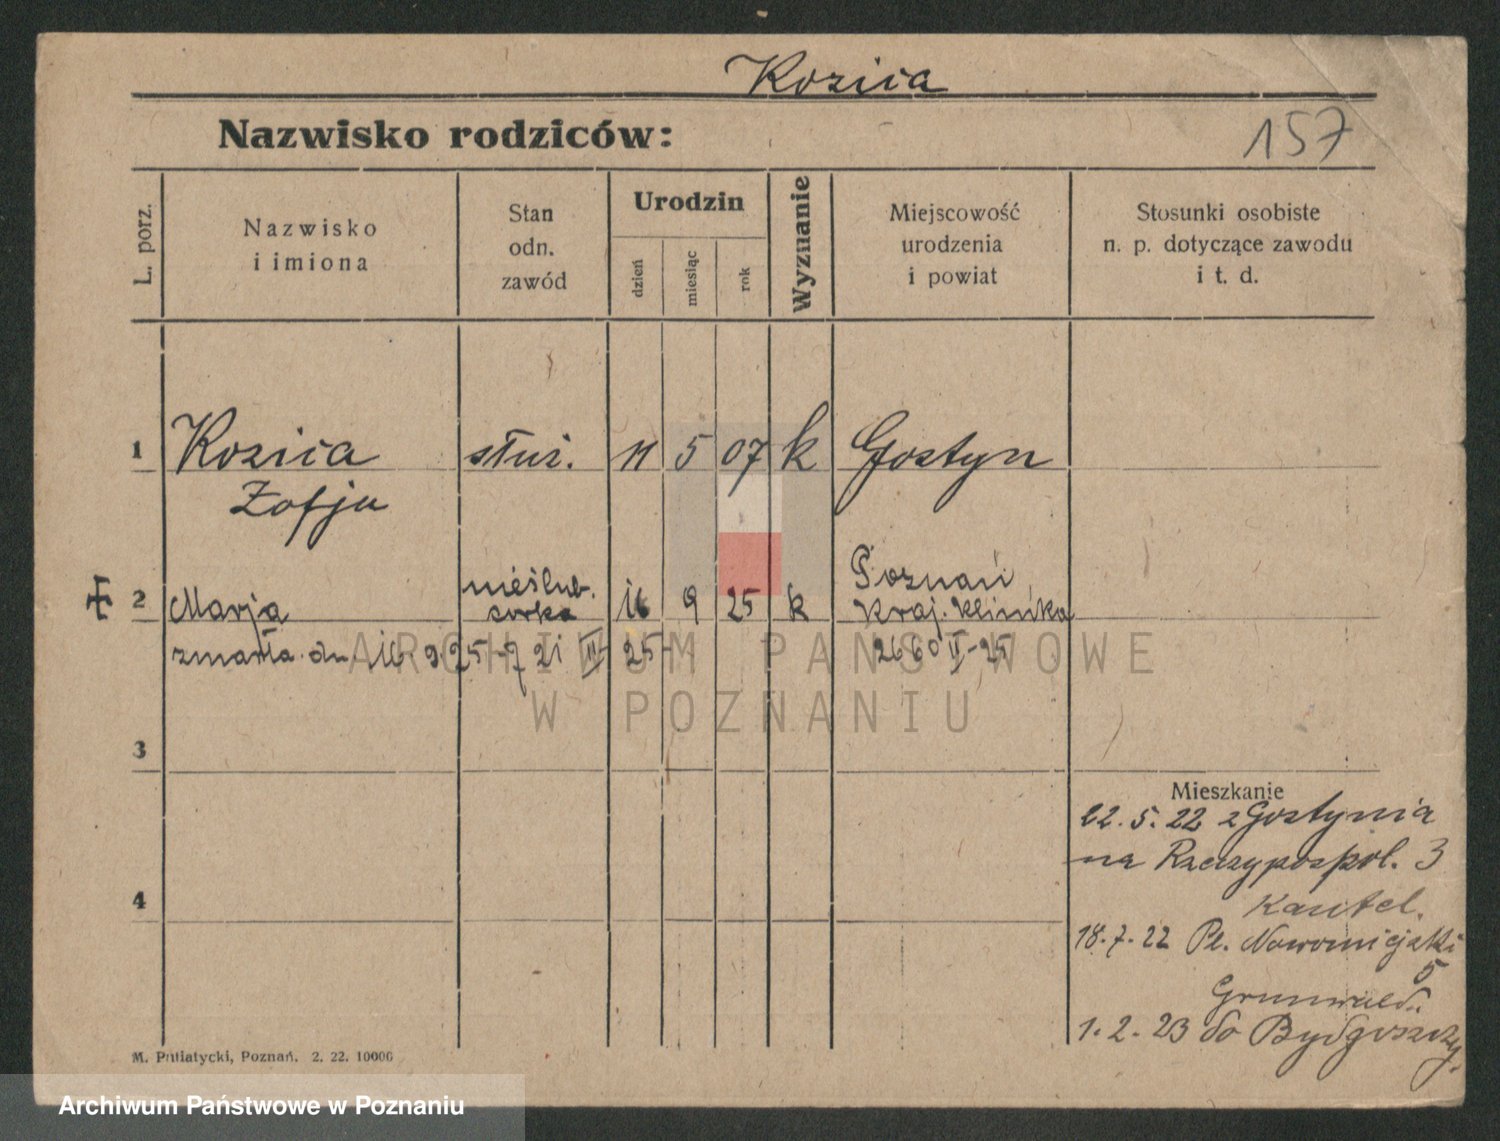 Kozica
Nazwisko rodziców:
157
L. porz.
Nazwisko
i imiona
Stan
odn.
zawód
Urodzin
dzień
miesiąc
rok
Wyznanie
Miejscowość
urodzenia
i powiat
Stosunki osobiste
n. p. dotyczące zawodu
i t. d.
1 Kozica służ. 11 5 07 k Gostyn
Zofja
2 Marja nieślub. córka 16 9 25 k Poznań
Kraj. Klinika
zmarła dn. 16 9 25
ARCHIWUM PAŃSTWOWE
W POZNANIU
3
4
Mieszkanie
22. 5. 22 z Gostynia
na Rzeczypospol. 3
Kantel.
18. 7. 22 Pl. Nowomiejski
5
Grunwald.
1. 2. 23 do Bydgoszczy.
M. Putiatycki, Poznań. 2. 22. 10000
Archiwum Państwowe w Poznaniu